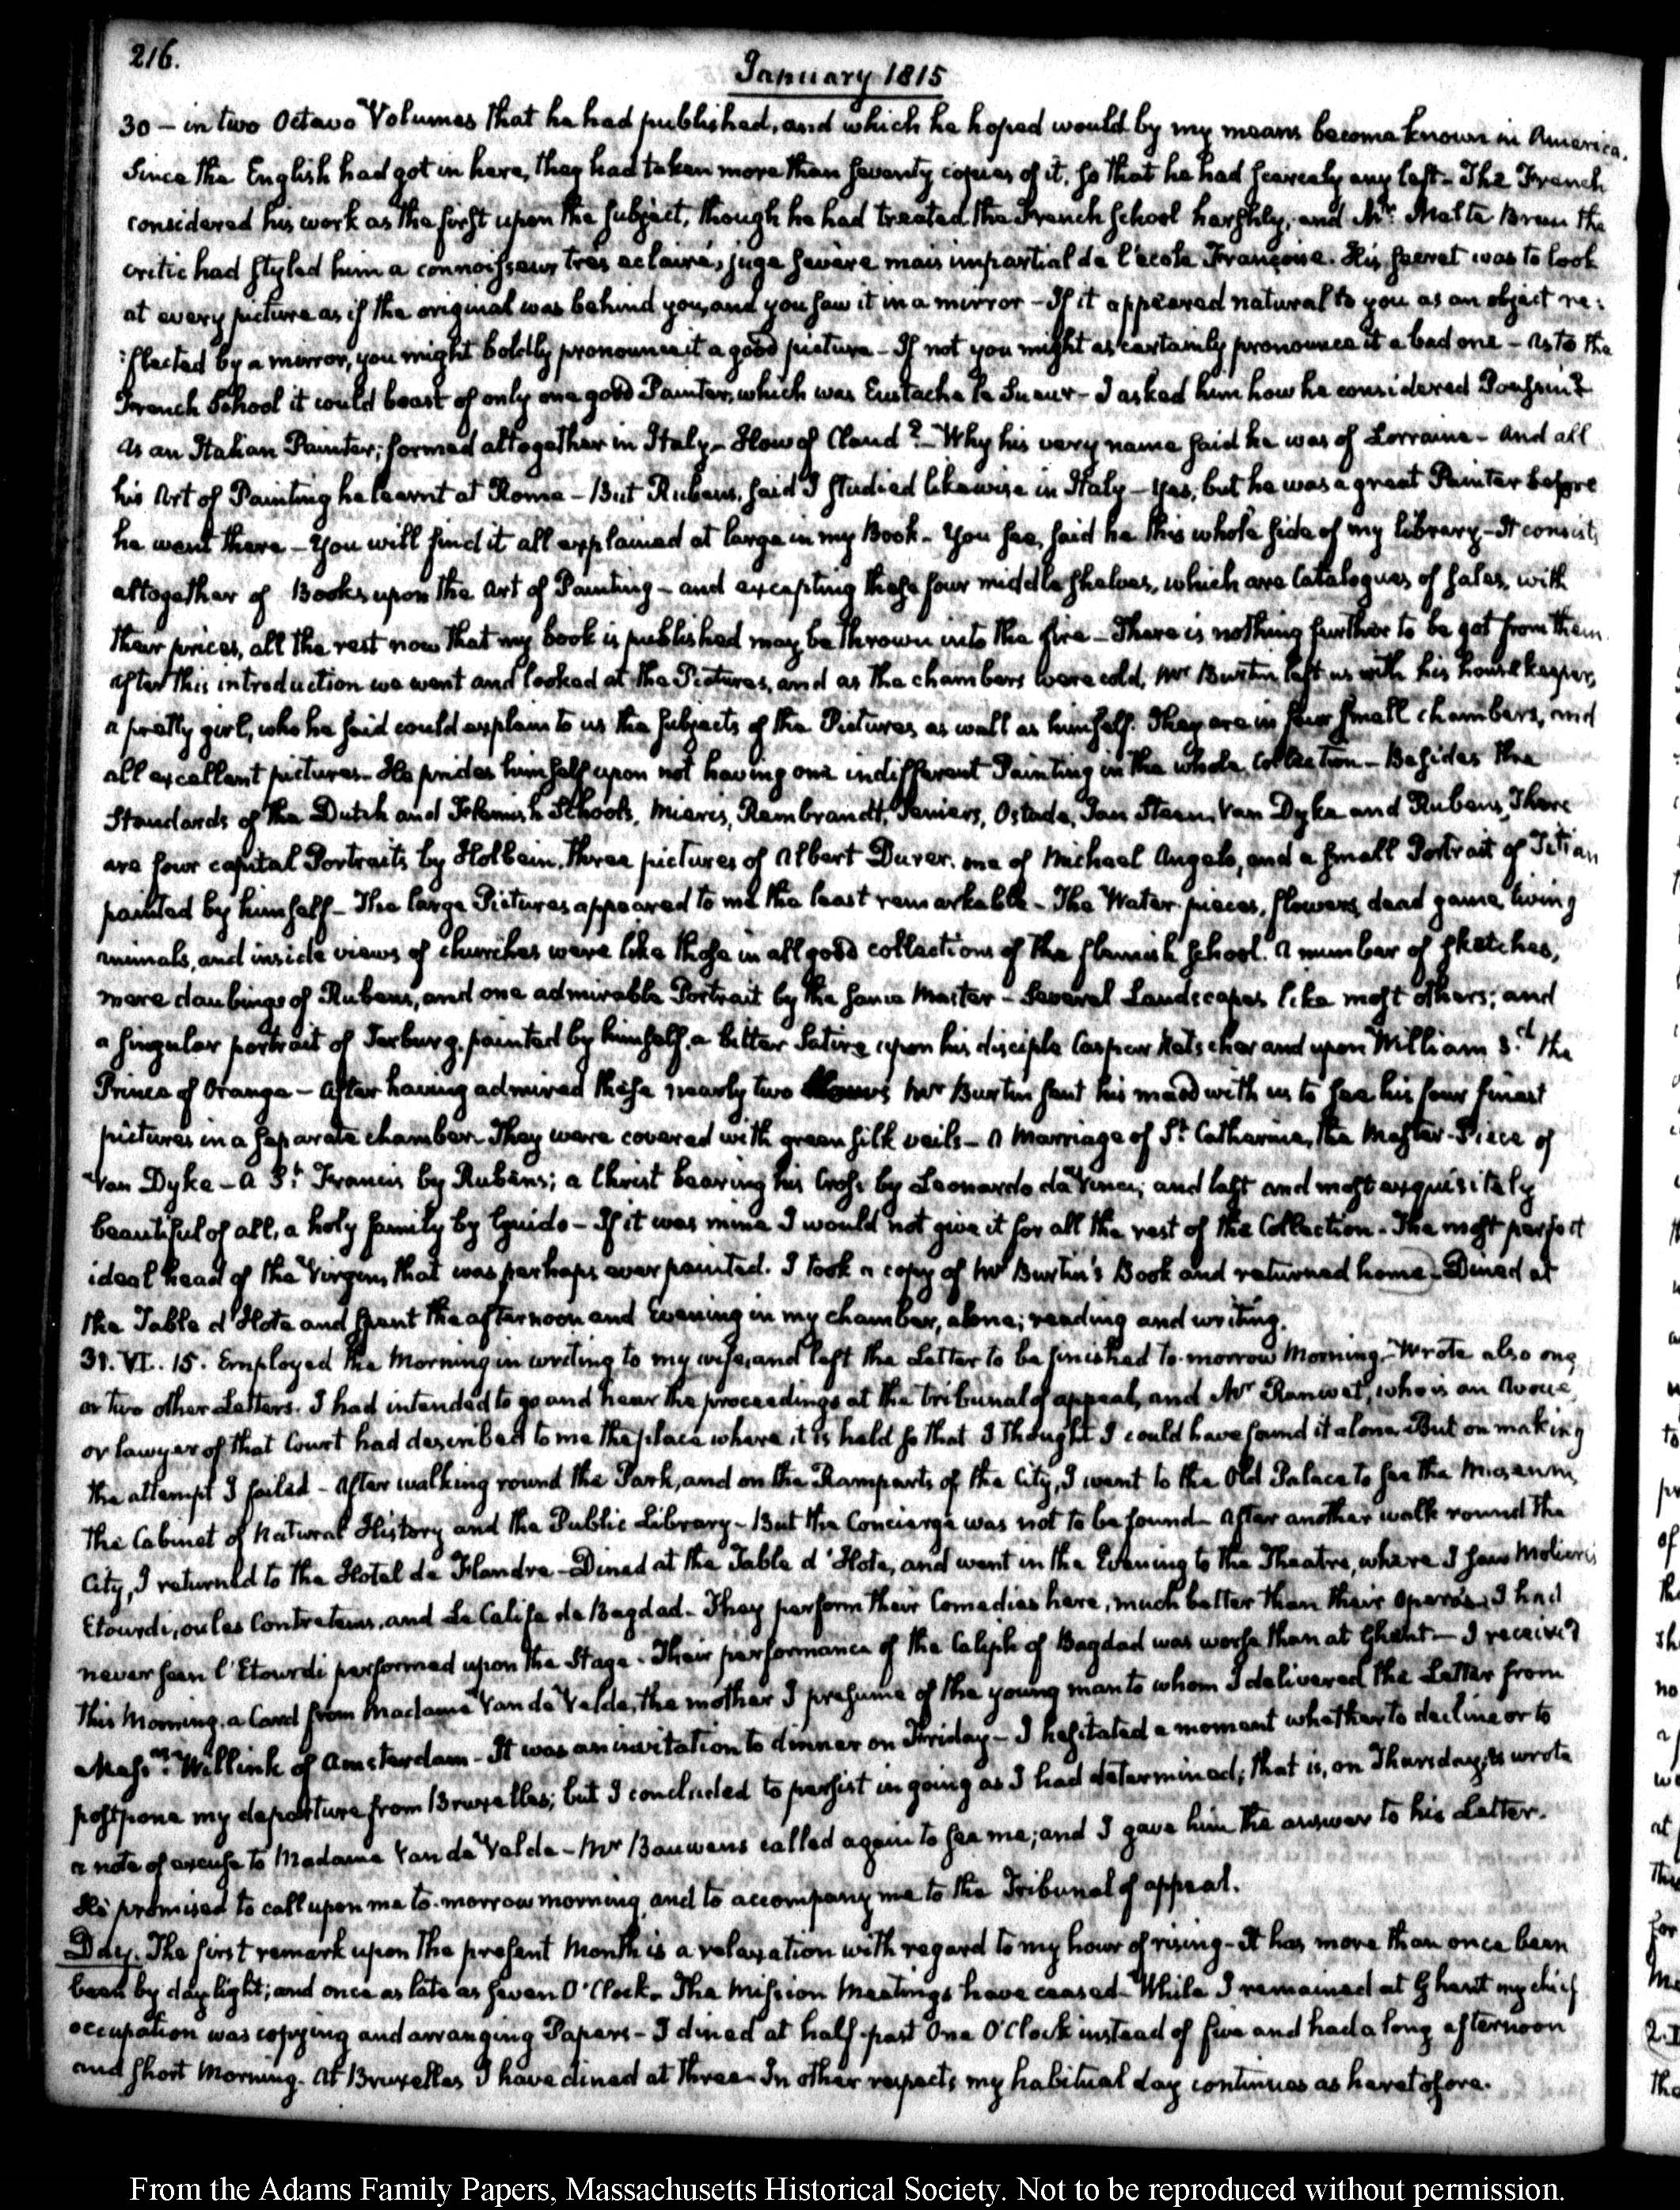 216.
January 1815
30 – in two Octavo Volumes that he had published, and which he hoped would by my means become known in America.
Since the English had got in here, they had taken more than seventy copies of it, so that he had scarcely any left – The French
considered his work as the first upon the subject, though he had treated the French School harshly, and Mr. Malte Brun the
critic had styled him a connoisseur très eclairé, juge sévère mais impartial de l'école Françoise. His secret was to look
at every picture as if the original was behind you, and you saw it in a mirror – If it appeared natural to you as an object re:
:flected by a mirror, you might boldly pronounce it a good picture – If not you might as certainly pronounce it a bad one – As to the
French School it could boast of only one good Painter, which was Eustache le Sueur – I asked him how he considered Poussin?
As an Italian Painter; formed altogether in Italy – How of Claud? – Why his very name said he was of Lorraine – And all
his Art of Painting he learnt at Rome – But Rubens, said I studied likewise in Italy – Yes, but he was a great Painter before
he went there – You will find it all explained at large in my Book – You see, said he this whole side of my library – It consists
altogether of Books upon the Art of Painting – and excepting these four middle shelves, which are Catalogues of sales, with
their prices, all the rest now that my book is published may be thrown into the fire – There is nothing further to be got from them.
After this introduction we went and looked at the Pictures, and as the chambers were cold, Mr Burtin left us with his housekeeper,
a pretty girl, who he said could explain to us the subjects of the Pictures as well as himself. They are in four small chambers, and
all excellent pictures – He prides himself upon not having one indifferent Painting in the whole Collection – Besides the
Standards of the Dutch and Flemish Schools, Mieris, Rembrandt, Teniers, Ostade, Jan Steen, Van Dyke and Rubens, There
are four capital Portraits by Holbein, three pictures of Albert Durer, one of Michael Angelo, and a small Portrait of Titian
painted by himself – The large Pictures appeared to me the least remarkable – The Water pieces, flowers, dead game, living
animals, and inside views of churches were like those in all good collections of the flemish school. A number of sketches,
mere daubings of Rubens, and one admirable Portrait by the same Master – Several Landscapes like most others; and
a singular portrait of Terburg, painted by himself, a bitter Satire upon his disciple Caspar Netscher and upon William 3.d the
Prince of Orange – After having admired these nearly two hours Mr Burtin sent his maid with us to see his four finest
pictures in a separate chamber. They were covered with green silk veils – A Marriage of St. Catharine, the Master-Piece of
Van Dyke – A St. Francis by Rubens; a Christ bearing his Cross by Leonardo da Vinci; and last and most exquisitely
beautiful of all, a holy family by Guido – If it was mine I would not give it for all the rest of the Collection – The most perfect
ideal head of the Virgin, that was perhaps ever painted. I took a copy of Mr Burtin's Book and returned home – Dined at
the Table d'Hote and spent the afternoon and Evening in my chamber, alone; reading and writing.
31. VI. 15. Employed the Morning in writing to my wife, and left the Letter to be finished to-morrow Morning – Wrote also one
or two other Letters. I had intended to go and hear the proceedings at the tribunal of appeal, and Mr Ranwet, who is an Avoué
or lawyer of that Court had described to me the place where it is held so that I thought I could have found it alone. But on making
the attempt I failed – After walking round the Park, and on the Ramparts of the City, I went to the Old Palace to see the Museum,
the Cabinet of Natural History and the Public Library – But the Concierge was not to be found – After another walk round the
City, I returned to the Hotel de Flandre – Dined at the Table d'Hote, and went in the Evening to the Theatre, where I saw Moliere's
Etourdi, ou les Contretems, and Le Calife de Bagdad – They perform their Comedies here, much better than their operas – I had
never seen l'Etourdi performed upon the Stage – Their performance of the Caliph of Bagdad was worse than at Ghent – I received
this Morning, a Card from Madame Van de Velde, the mother I presume of the young man to whom I delivered the Letter from
Messrs: Willink of Amsterdam – It was an invitation to dinner on Friday – I hesitated a moment whether to decline or to
postpone my departure from Bruxelles; but I concluded to persist in going as I had determined; that is, on Thursday, & wrote
a note of excuse to Madame Van de Velde – Mr Bauwens called again to see me; and I gave him the answer to his Letter.
He promised to call upon me to-morrow morning and to accompany me to the Tribunal of appeal.
Day. The first remark upon the present Month is a relaxation with regard to my hour of rising – It has more than once been
been by day light; and once as late as seven O'Clock. The Mission Meetings have ceased – While I remained at Ghent my chief
occupation was copying and arranging Papers – I dined at half-past One O'Clock instead of five and had a long afternoon
and short Morning. At Bruxelles I have dined at three – In other respects my habitual day continues as heretofore.
From the Adams Family Papers, Massachusetts Historical Society. Not to be reproduced without permission.